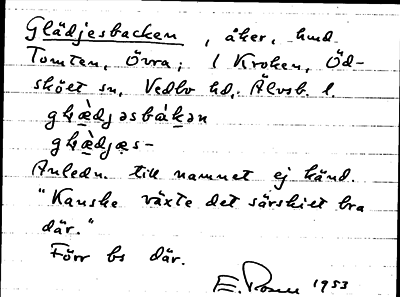 Glädjesbacken, åker, hmd
Tomten, Övra; i Kroken, Öd-
sköet sn, Vedbo hd, Älvsb. l.
glæ̀djəsbàkən
glæ̀djæs-
Anledn. till namnet ej känd.
"Kanske växte det särskilt bra
där."
Förr bs där.
E. Rosell 1953